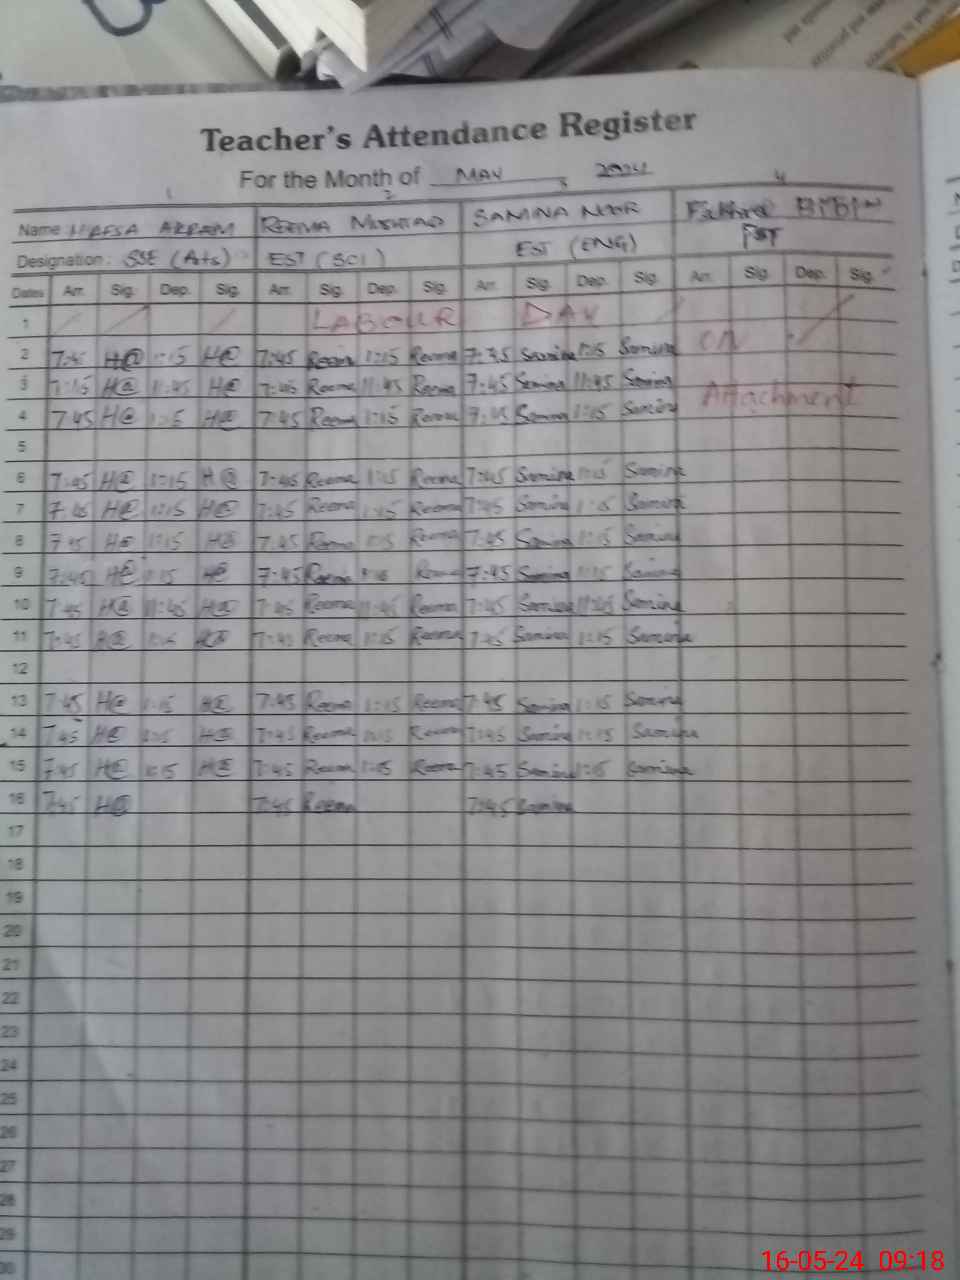 Teacher's Attendance Register
For the Month of MAY 2024
1 2 3 4
Name HAFSA AKRAM REEMA MUSHTAQ SAMINA NOOR BIBI
Designation: SSE (Arts) EST (SCI) EST (ENG)
Dates Arr. Sig. Dep. Sig. Arr. Sig. Dep. Sig. Arr. Sig. Dep. Sig. Arr. Sig. Dep. Sig.
1 LABOUR DAY
2 7:45 H@ 1:15 H@ 7:45 Reema 1:15 Reema 7:45 Samina 1:15 Samina ON
3 H@ 11:45 H@ 7:45 Reema 11:45 Reema 7:45 Samina 11:45 Samina Attachment
4 7:45 H@ H@ 7:45 Reema 1:15 Reema 7:45 Samina 1:15 Samina
5
6 7:45 H@ 1:15 H@ 7:45 Reema 1:15 Reema 7:45 Samina 1:15 Samina
7 7:45 H@ 1:15 H@ 7:45 Reema 1:15 Reema 7:45 Samina Samina
8 7:45 H@ 1:15 H@ 7:45 Reema Reema 7:45 Samina 1:15 Samina
9 7:45 H@ H@ 7:45 Reema Reema 7:45 Samina 1:15 Samina
10 7:45 H@ 11:45 H@ 7:45 Reema 11:45 Reema 7:45 Samina 11:45 Samina
11 7:45 H@ H@ 7:45 Reema 1:15 Reema 7:45 Samina 1:15 Samina
12
13 7:45 H@ 1:15 H@ 7:45 Reema 1:15 Reema 7:45 Samina 1:15 Samina
14 7:45 H@ H@ 7:45 Reema 1:15 Reema 7:45 Samina 1:15 Samina
15 7:45 H@ 1:15 H@ 7:45 Reema 1:15 Reema 7:45 Samina 1:15 Samina
16 7:45 H@ 7:45 Reema 7:45 Samina
17
18
19
20
21
22
23
24
25
26
27
28
29
30
16-05-24 09:18